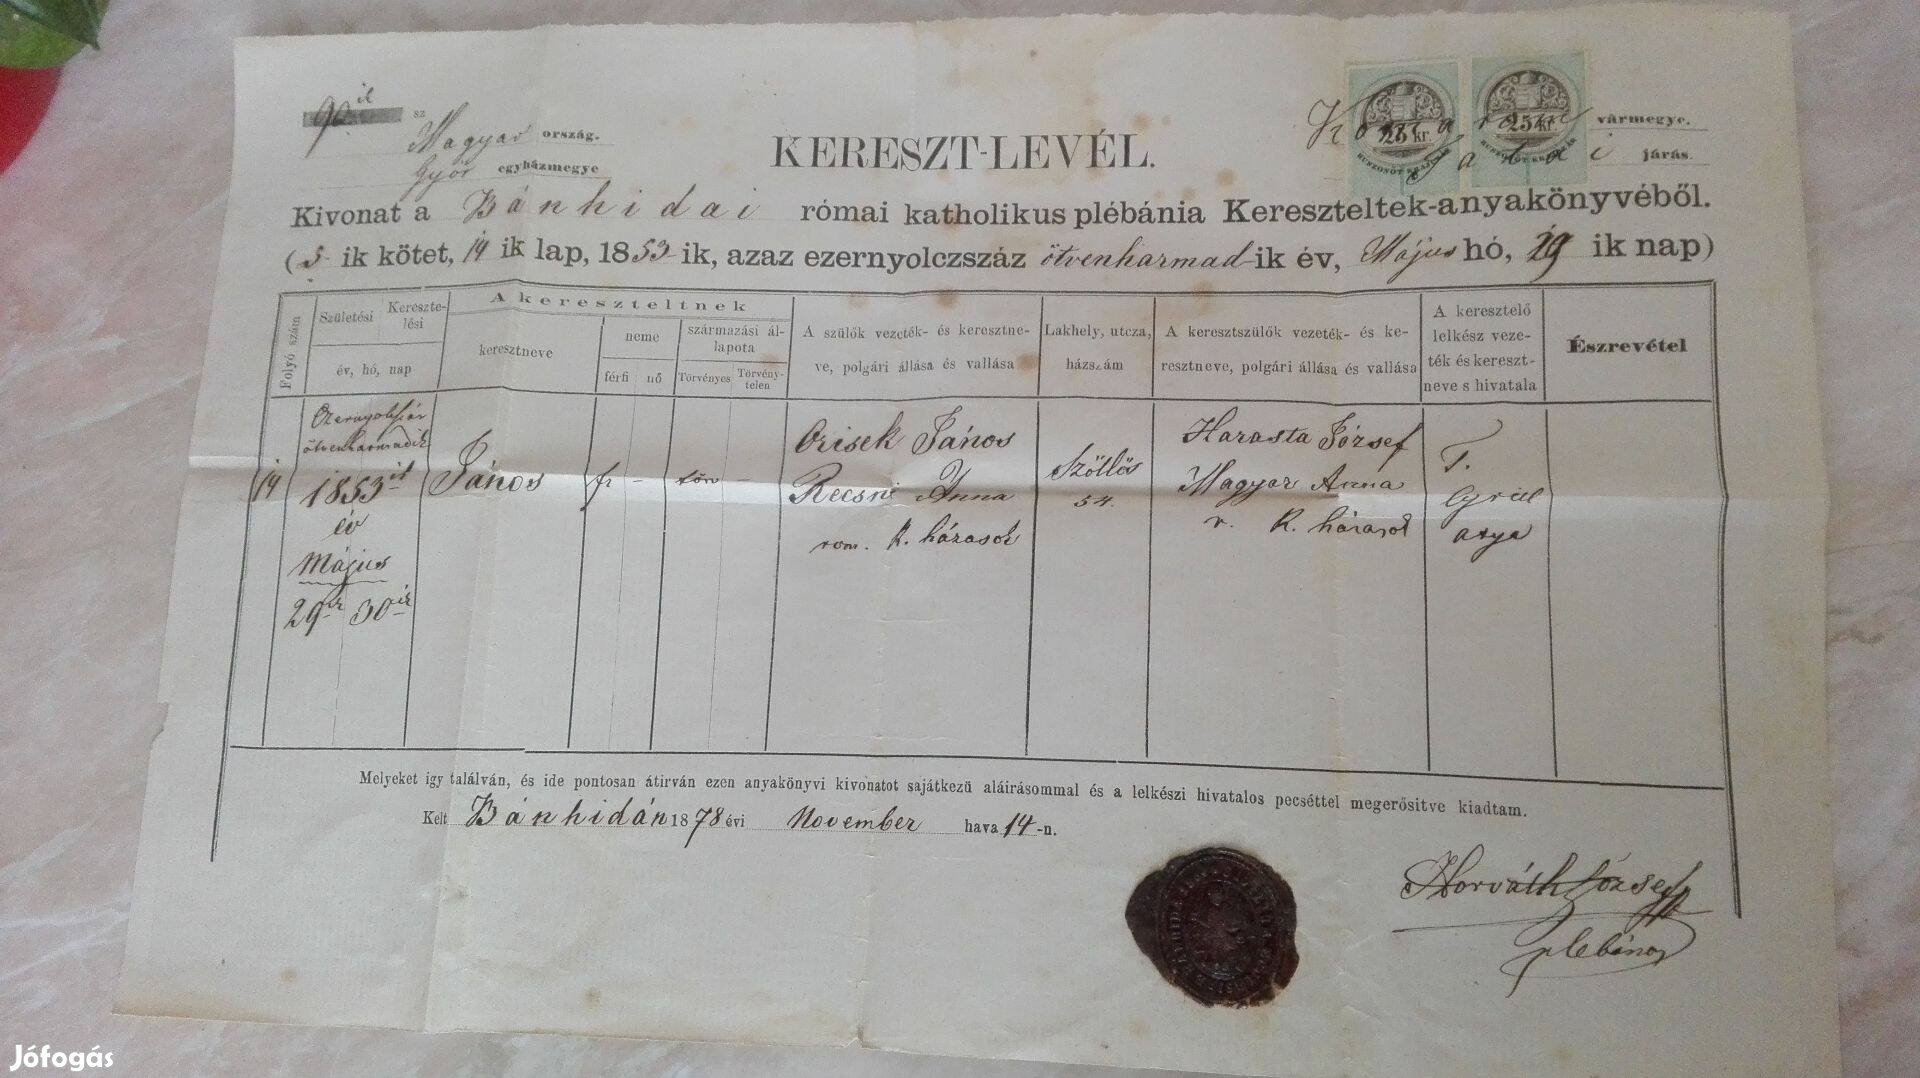 sz
Magyar ország.
Győr egyházmegye
25 kr. 25 kr.
HUSZONÖT KRAJCZÁR
HUSZONÖT KRAJCZÁR
Komárom vármegye.
Tatai járás
KERESZT-LEVÉL.
Kivonat a Bánhidai római katholikus plébánia Kereszteltek-anyakönyvéből.
(5 ik kötet, 14 ik lap, 1853 ik, azaz ezernyolczszáz ötvenharmad-ik év, Május hó, 29 ik nap)
Folyó szám
Születési Keresztelési
év, hó, nap
A kereszteltnek
keresztneve
neme
férfi nő
származási állapota
Törvényes Törvénytelen
A szülők vezeték- és keresztneve, polgári állása és vallása
Lakhely, utcza, házszám
A keresztszülők vezeték- és keresztneve, polgári állása és vallása
A keresztelő lelkész vezeték és keresztneve s hivatala
Észrevétel
14
ötvenharmadik
1853ik
év
Május
29ik 30ik
János
fi -
törv -
Czisek János
Recsni Anna
rom. K. házasok
Szőllős
54.
Harasta József
Magyar Anna
r. K. házasok
T.
Cyrill
atya
Melyeket igy találván, és ide pontosan átirván ezen anyakönyvi kivonatot sajátkezű aláirásommal és a lelkészi hivatalos pecséttel megerősitve kiadtam.
Kelt Bánhidán 1878 évi November hava 14-n.
Horváth József
plébános
Jófogás